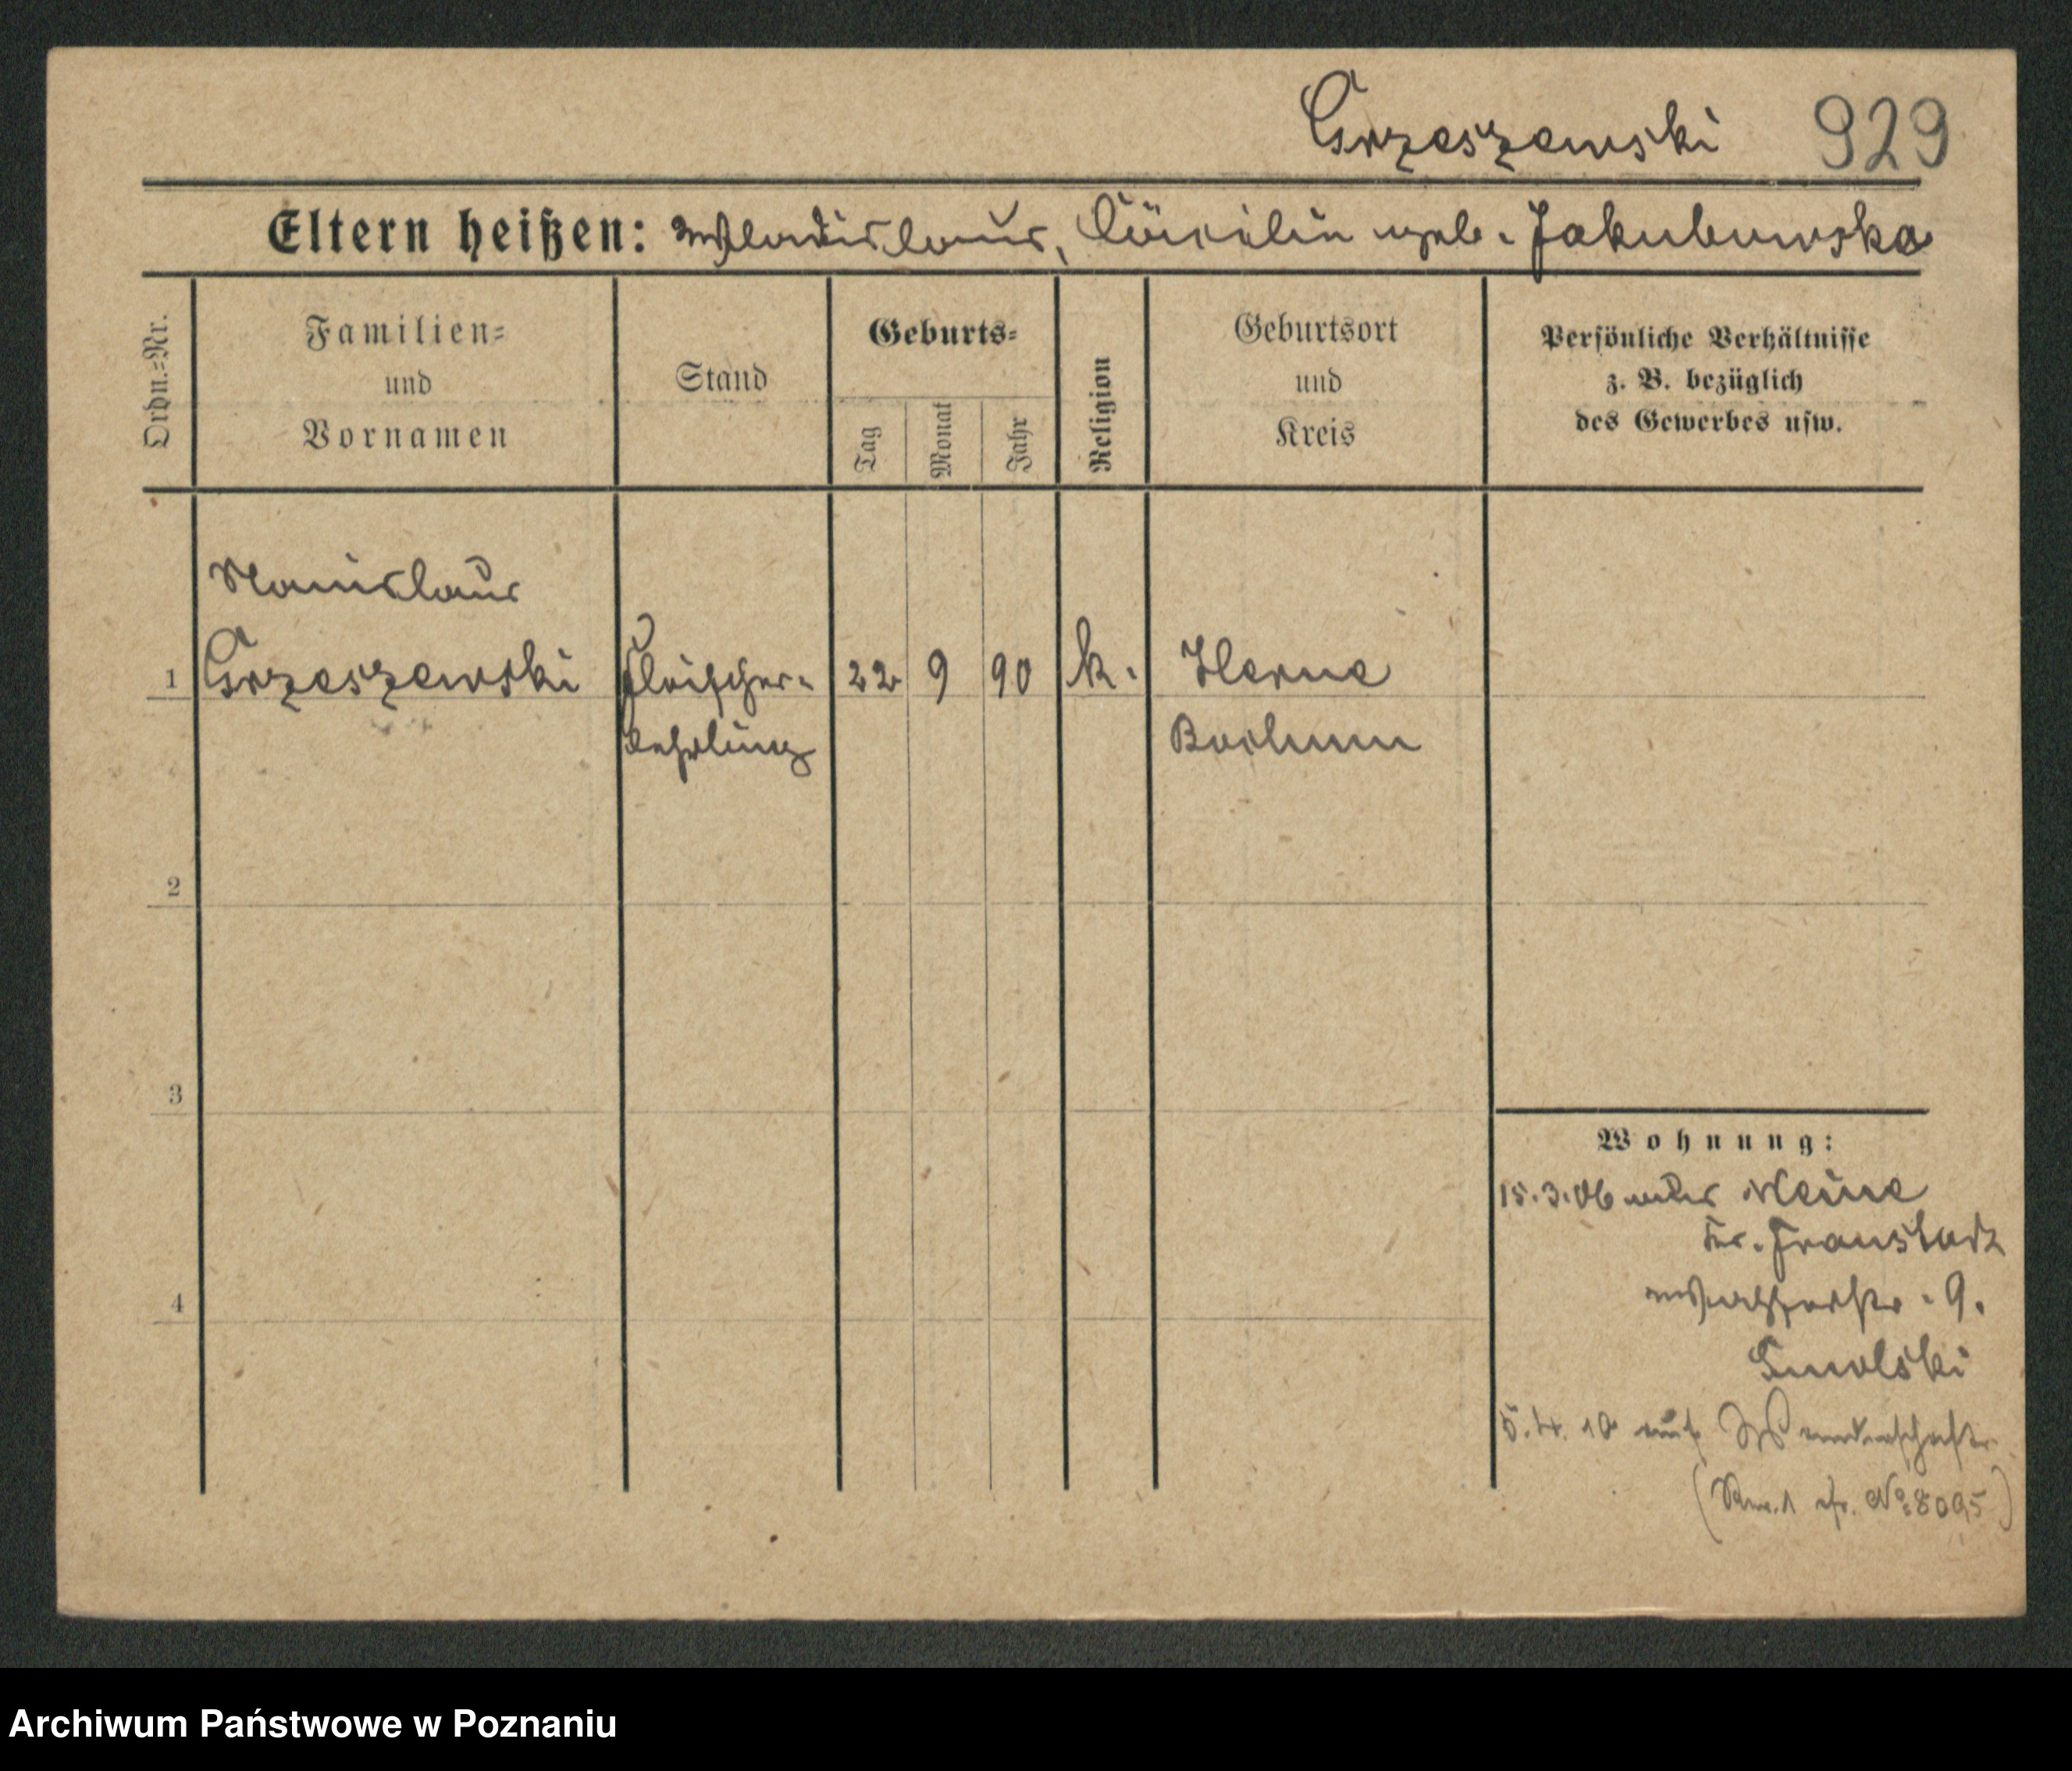 Grzeszewski 929
Eltern heißen: Wladislaus, Cäcilie geb. Jakubowska
Ordn.=Nr.
Familien=
und
Vornamen
Stand
Geburts=
Tag
Monat
Jahr
Religion
Geburtsort
und
Kreis
Persönliche Verhältnisse
z. B. bezüglich
des Gewerbes usw.
Stanislaus
1 Grzeszewski Fleischer- 22 9 90 k. Herne
Lehrling Bochum
2
3
4
Wohnung:
15.3.06
Kr. Fraustadt
Wasserstr. 9.
Smolski
5.4.10 auf Wanderschaft
No 8095)
Archiwum Państwowe w Poznaniu